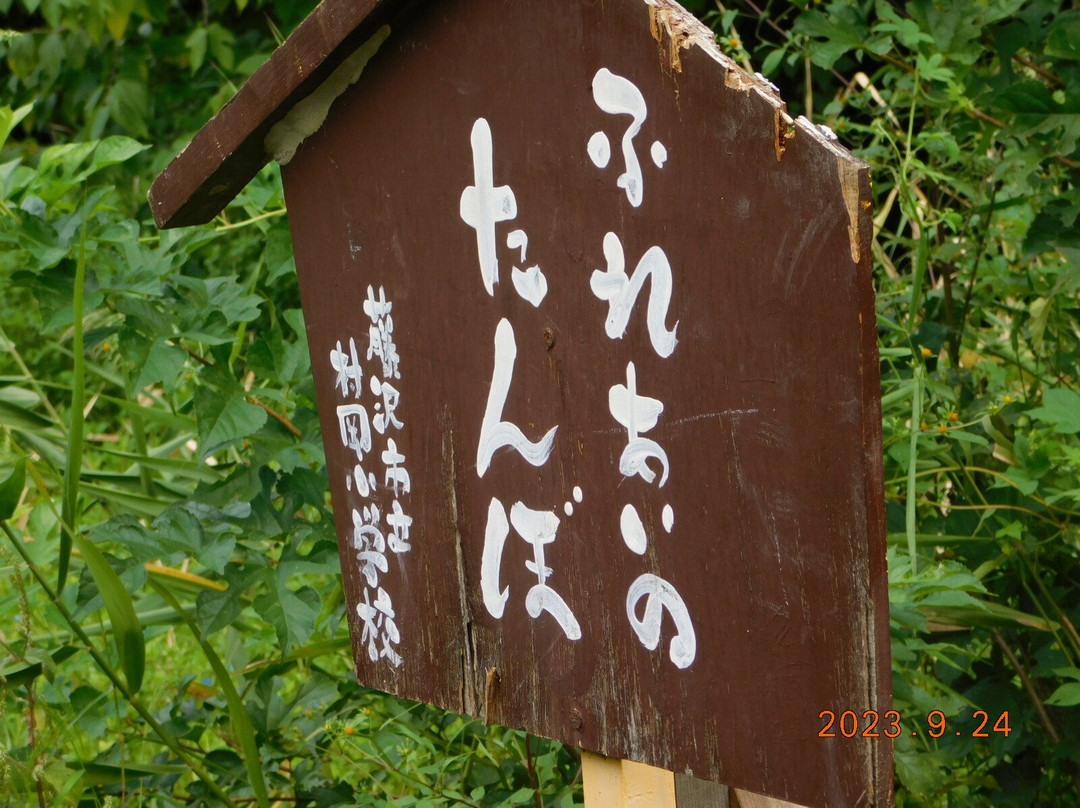 ふれあいの
たんぼ
藤沢市立
村岡小学校
2023.9.24